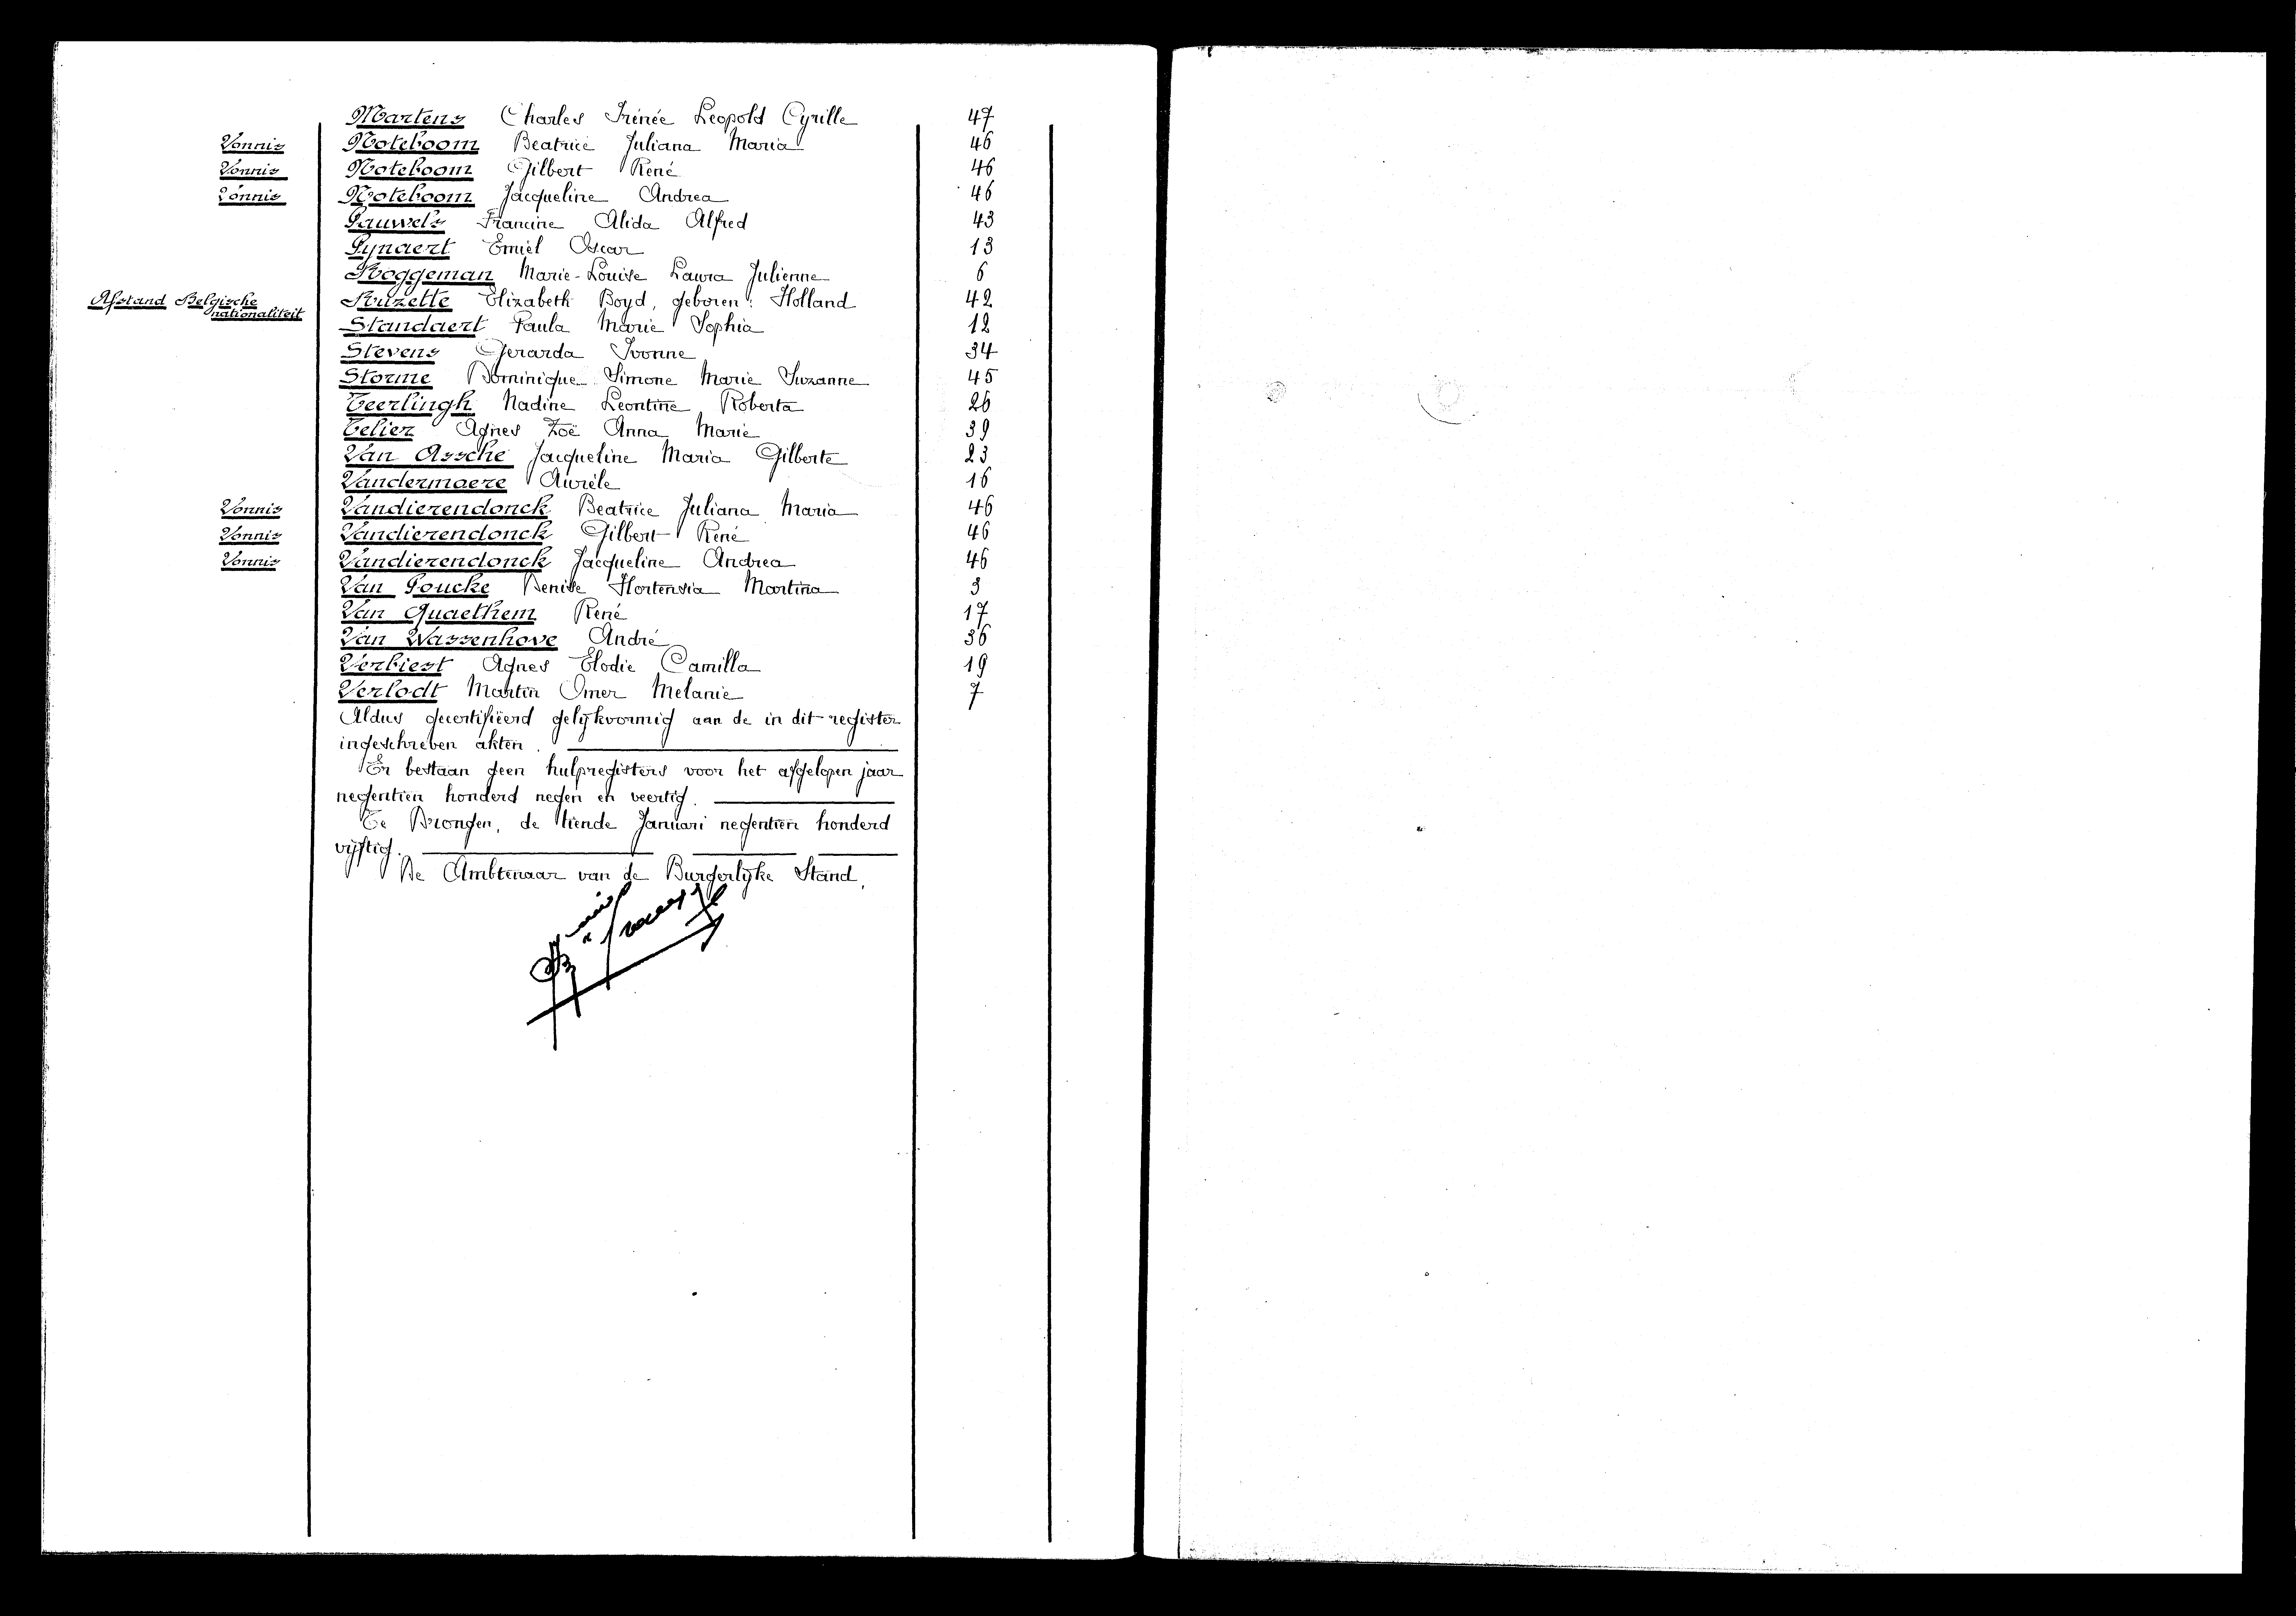 Martens Charles Irénée Leopold Cyrille 47
Vonnis Noteboom Beatrice Juliana Maria 46
Vonnis Noteboom Gilbert René 46
Vonnis Noteboom Jacqueline Andrea 46
Pauwels Francine Alida Alfred 43
Pynaert Emiel Oscar 13
Roggeman Marie-Louise Laura Julienne 6
Afstand Belgische nationaliteit Ruzette Elizabeth Boyd, geboren: Holland 42
Standaert Paula Marie Sophia 12
Stevens Gerarda Ivonne 34
Storme Dominique Simone Marie Suzanne 45
Teerlingh Nadine Leontine Roberta 26
Telier Agnes Zoë Anna Marie 39
Van Assche Jacqueline Maria Gilberte 23
Vandermaere Aurèle 16
Vonnis Vandierendonck Beatrice Juliana Maria 46
Vonnis Vandierendonck Gilbert René 46
Vonnis Vandierendonck Jacqueline Andrea 46
Van Poucke Denise Hortensia Martina 3
Van Quaethem René 17
Van Wassenhove André 36
Verbiest Agnes Elodie Camilla 19
Verlodt Martin Omer Melanie 7
Aldus gecertifiëerd gelijkvormig aan de in dit register
ingeschreven akten.
Er bestaan geen hulpregisters voor het afgelopen jaar
negentien honderd negen en veertig.
Te Drongen, de tiende Januari negentien honderd
vijftig.
De Ambtenaar van de Burgerlijke Stand,